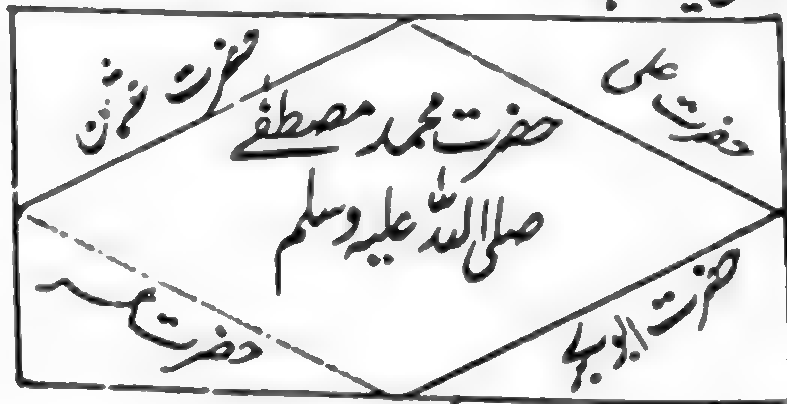 حضرت علی
حضرت عثمان
حضرت محمد مصطفےٰ
صلی اللہ علیہ وسلم
حضرت ابو
حضرت عمر